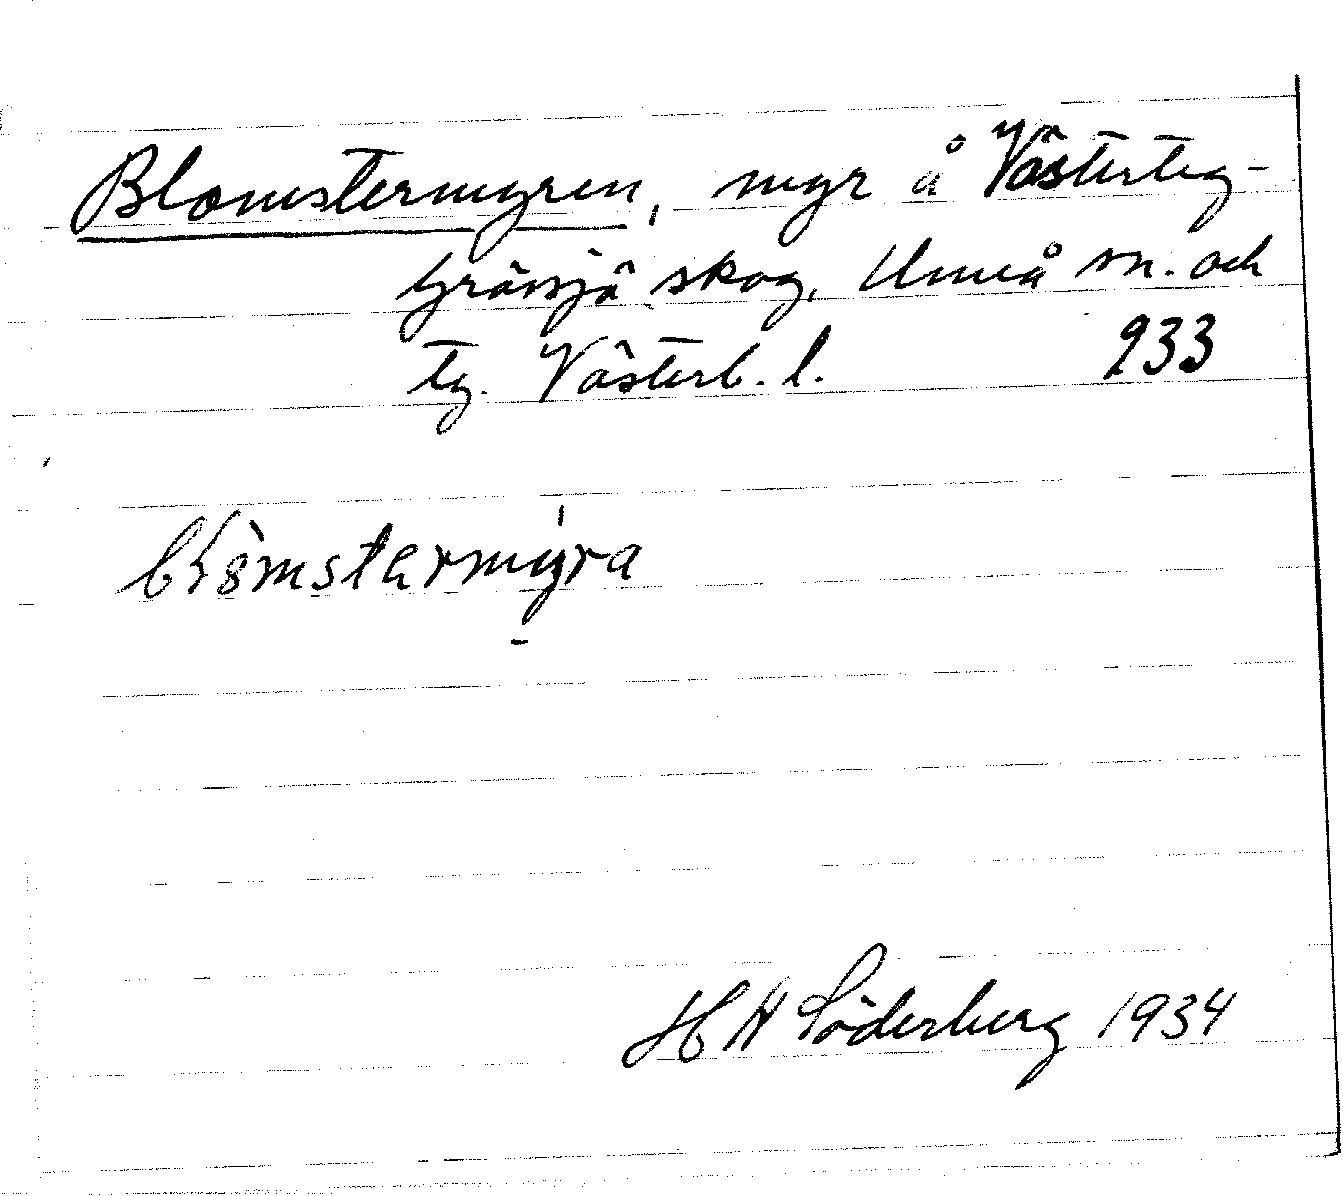 Blomstermyren, myr å Västerteg-
Grässjö skog, Umeå sn. och
tg. Västerb. l. 933
blòmstarmyra
H A Söderberg 1934